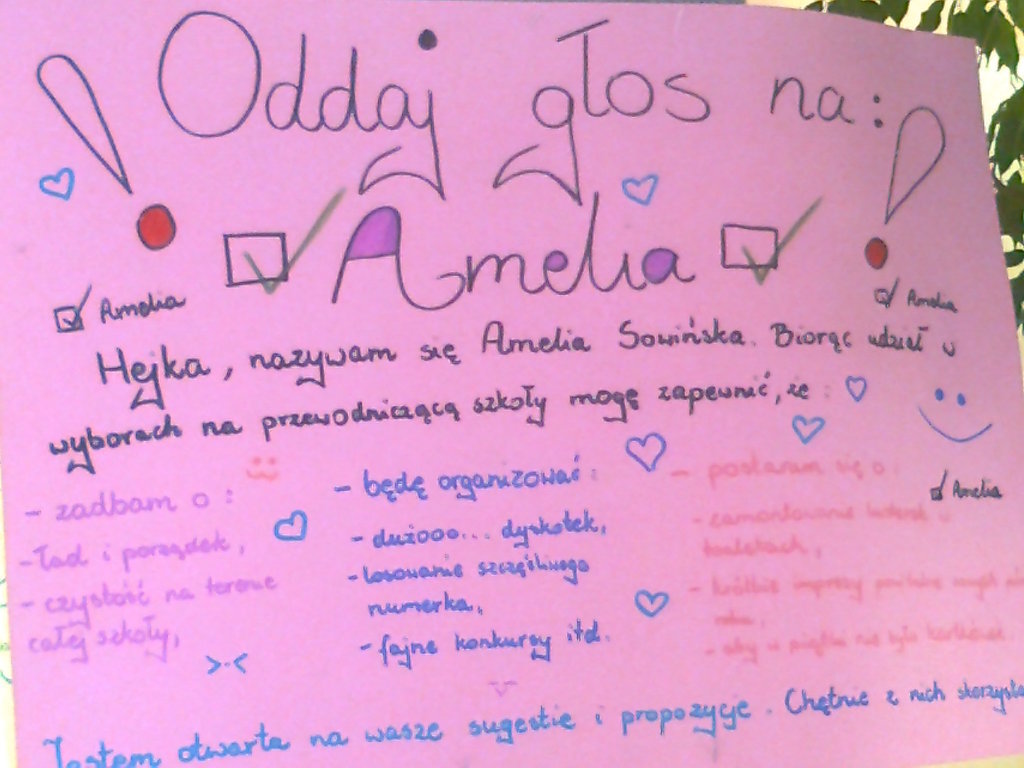 Oddaj głos na:
Amelia
Amelia
Amelia
Hejka, nazywam się Amelia Sowińska. Biorąc udział w
wyborach na przewodniczącą szkoły mogę zapewnić, że:
Amelia
- zadbam o:
- ład i porządek,
- czystość na terenie
całej szkoły,
- będę organizować:
- dużooo... dyskotek,
- losowanie szczęśliwego
numerka,
- fajne konkursy itd.
- postaram się o:
- zamontowanie luster w
toaletach,
- krótkie imprezy
roku,
- aby w piątki nie było kartkówek.
>.<
Jestem otwarta na wasze sugestie i propozycje. Chętnie z nich skorzysta